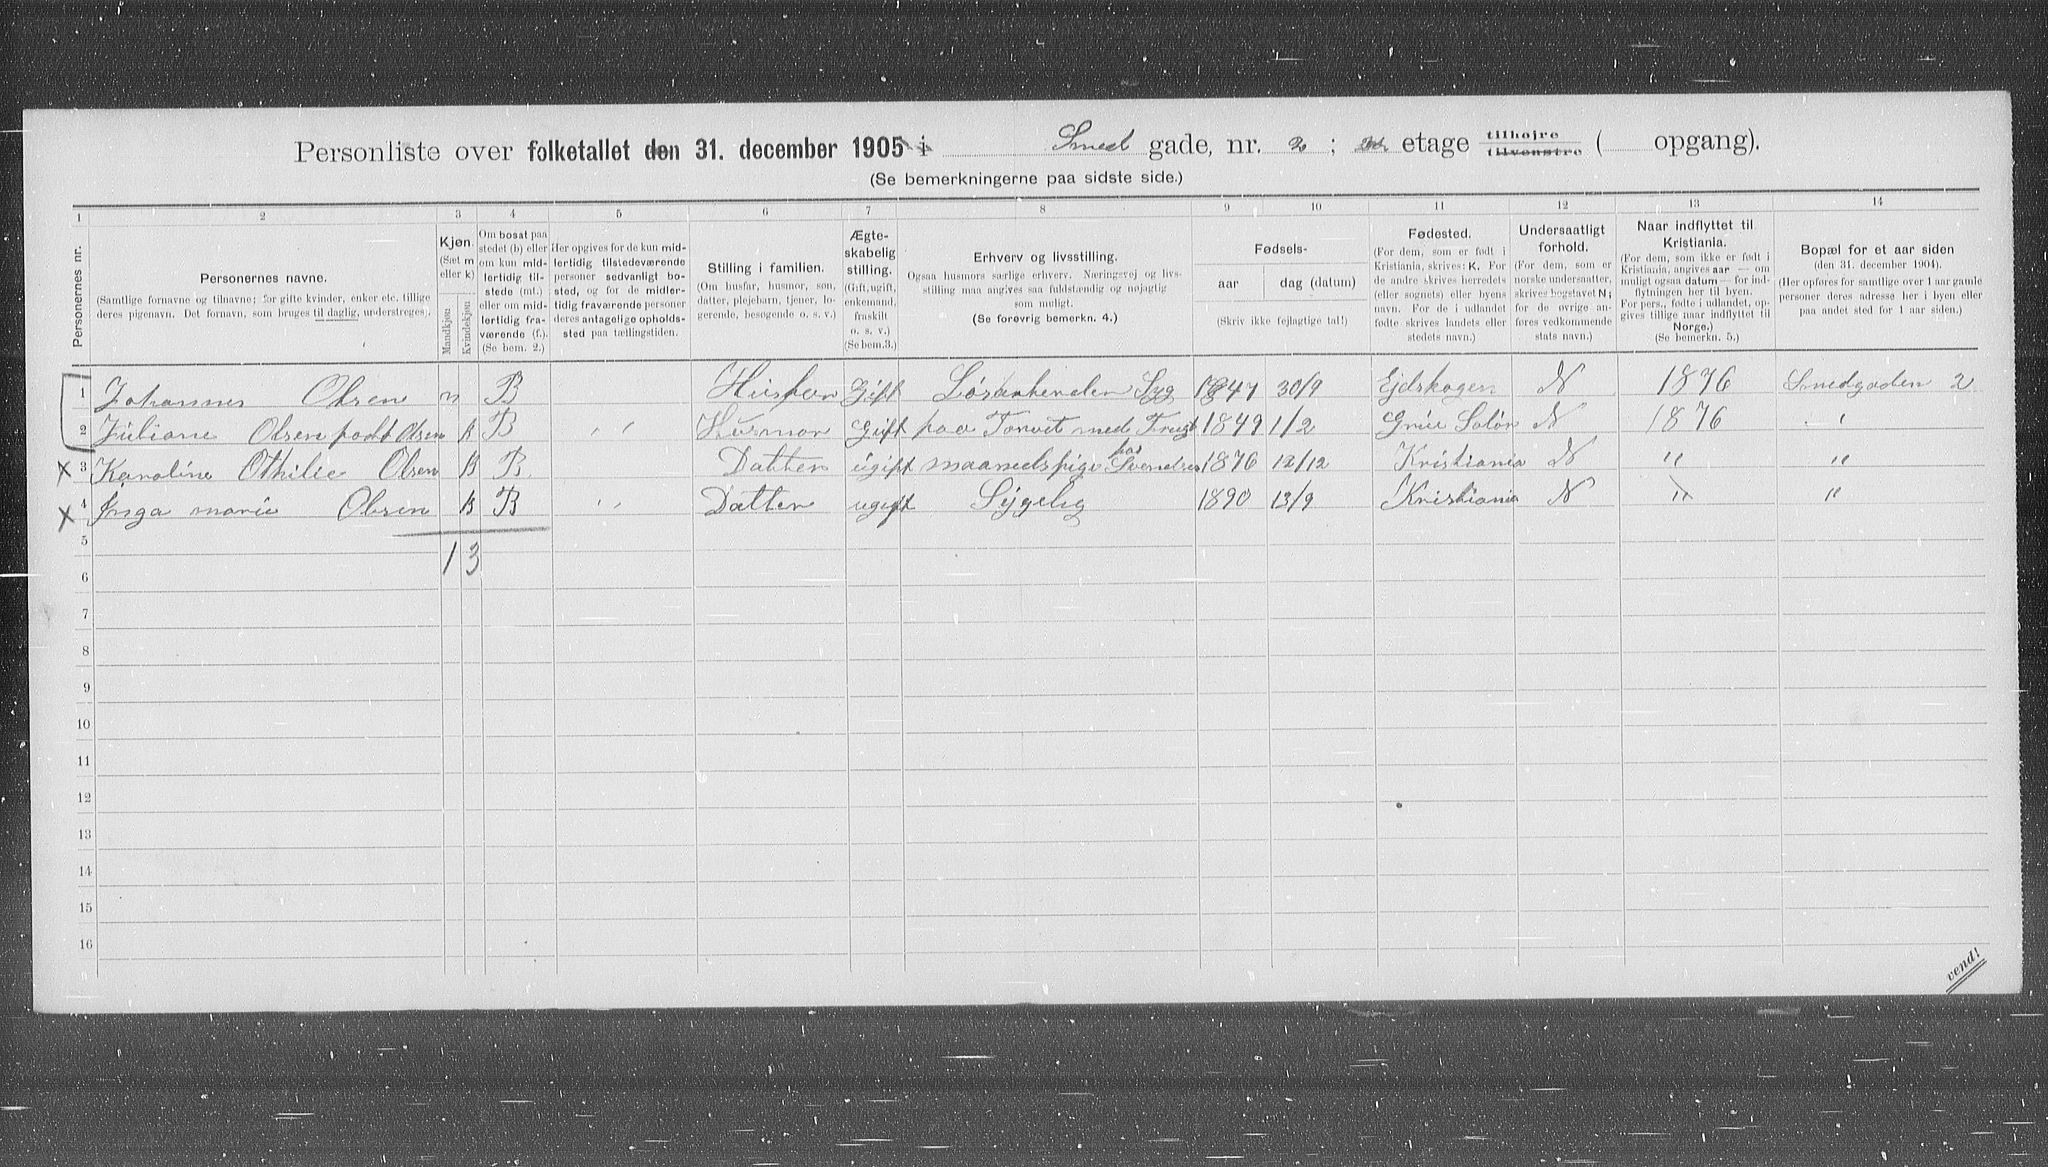 Personliste over folketallet den 31. december 1905 i Smed gade, nr. 2 ; etage tilhøjre tilvenstre ( opgang).
(Se bemerkningerne paa sidste side.)
1 2 3 4 5 6 7 8 9 10 11 12 13 14
Personernes nr.
Personernes navne.
(Samtlige fornavne og tilnavne; for gifte kvinder, enker etc. tillige
deres pigenavn. Det fornavn, som bruges til daglig, understreges).
Kjøn.
(Sæt m
eller k)
Mandkjøn
Kvindekjøn
Om bosat paa
stedet (b) eller
om kun mid-
lertidig til-
stede (mt.)
eller om mid-
lertidig fra-
værende (f.).
(Se bem. 2.)
Her opgives for de kun mid-
lertidig tilstedeværende
personer sedvanligt bo-
sted, og for de midler-
tidig fraværende personer
deres antagelige opholds-
sted paa tællingstiden.
Stilling i familien.
(Om husfar, husmor, søn,
datter, plejebarn, tjener, lo-
gerende, besøgende o. s. v.)
Ægte-
skabelig
stilling.
(Gift, ugift,
enkemand,
fraskilt
o. s. v.)
(Se bem.3.)
Erhverv og livsstilling.
Ogsaa husmors særlige erhverv. Næringsvej og livs-
stilling maa angives saa fuldstændig og nøjagtig
som muligt.
(Se forøvrig bemerkn. 4.)
Fødsels-
aar dag (datum)
(Skriv ikke fejlagtige tal!)
Fødested.
(For dem, som er født i
Kristiania, skrives: K. For
de andre skrives herredets
(eller sognets) eller byens
navn. For de i udlandet
fødte skrives landets eller
stedets navn.)
Undersaatligt
forhold.
(For dem, som er
norske undersaatter,
skrives bogstavet N;
for de øvrige an-
føres vedkommende
stats navn.)
Naar indflyttet til
Kristiania.
(For dem, som ikke er født i
Kristiania, angives aar — om
muligt ogsaa datum — for ind-
flytningen her til byen.
For pers., fødte i udlandet, op-
gives tillige naar indflyttet til
Norge.)
(Se bemerkn. 5.)
Bopæl for et aar siden
(den 31. december 1904).
(Her opføres for samtlige over 1 aar gamle
personer deres adresse her i byen eller
paa andet sted for 1 aar siden.)
1 Johannes Olsen m B Husfar Gift Løsarbeider Syg 1847 30/9 Ejdskogen N 1876 Smedgaden 2
2 Juliane Olsen født Olsen k B " Husmor Gift paa Torvet med Frugt 1849 1/2 Grue Solør N 1876 "
x 3 Karoline Othilie Olsen k B Datter ugift maanedspige hos Svendsen 1876 12/12 Kristiania N " "
x 4 Inga marie Olsen k B " Datter ugift Sygelig 1890 13/9 Kristiania N " "
5
1 3
6
7
8
9
10
11
12
13
14
15
16
vend!